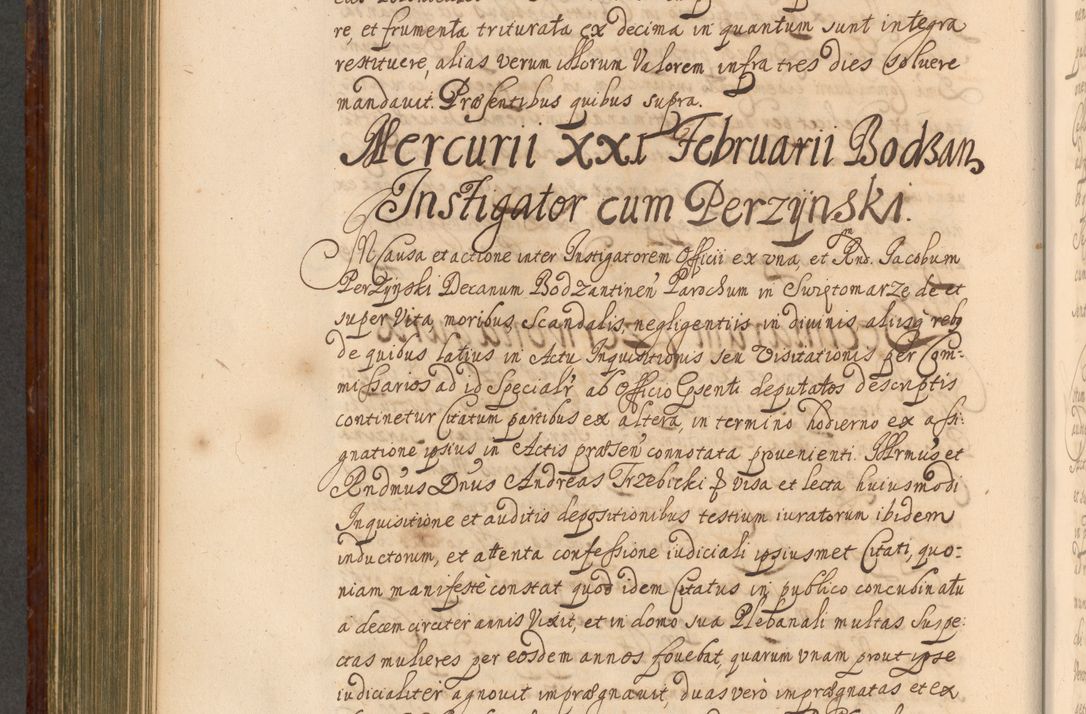 re, et frumenta triturata ex decima in quantum sunt integra
restituere, alias verum illorum Valorem infra tres dies Soluere
mandauit. Præsentibus quibus supra.
Mercurii XXI Februarii Bodzan,
Instigator cum Perzÿnski.
IN Causa et actione inter Instigatorem Officii ex vna, et Rnd. Iacobum
Perzÿnski Decanum Bodzantinen Parochum in Swiętomarze de et
super Vita, moribus, Scandalis, negligentiis in diuinis aliisq rebq
de quibus latius in Actu Inquisitionis seu Visitationis per Com-
missarios ad id Specialr ab Officio Epsenti deputatos descriptis
continetur Citatum partibus ex altera, in termino hodierno ex assi-
gnatione ipsius in Actis præsen connotata prouenienti. Illrmus et
Rndmus Dnus Andreas Trzebicki Epus visa et lecta huiusmodi
Inquisitione et auditis depositionibus testium iuratorum ibidem
inductorum, et attenta confessione iudiciali ipsiusmet Citati, quo-
niam manifestè constat quod idem Citatus in publico concubinatu
a decem circiter annis Vixit, et in domo sua Plebanali multas Suspe-
ctas mulieres per eosdem annos fouebat, quarum vnam prout ipse
iudicialiter agnouit imprægnauit, duas verò imprægnatas et ex